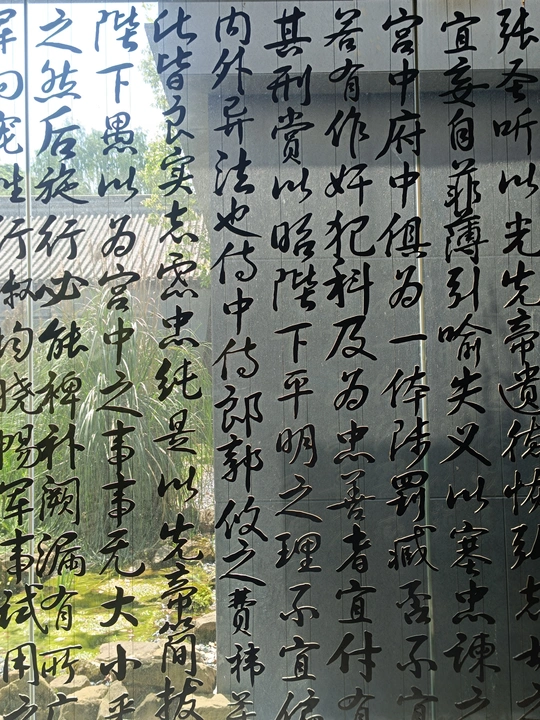 张圣听以光先帝遗德恢弘志士之
宜妄自菲薄引喻失义以塞忠谏之
宫中府中俱为一体陟罚臧否不宜
若有作奸犯科及为忠善者宜付有
其刑赏以昭陛下平明之理不宜偏
内外异法也侍中侍郎郭攸之费祎
此皆良实志虑忠纯是以先帝简拔
陛下愚以为宫中之事事无大小悉
之然后施行必能裨补阙漏有所广
军向宠性行淑均晓畅军事试用之